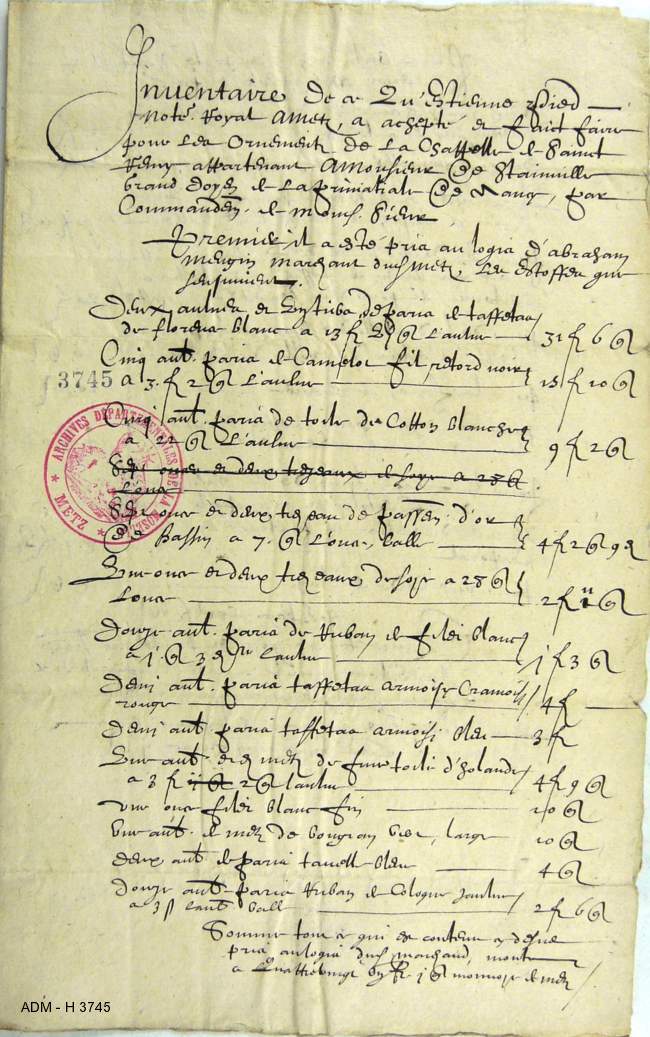 Inventaire de ce Qu'Estienne Pied
Note. Royal A Metz, a achepté et faict faire
pour Les Ornement de La Chappelle de Sainct
Remy appartenant A Monsieur de Stainville
Grand doyen de La primatiale de Nancy, par
Commandem. de mond. Sieur
Premier il a esté pris au logis d'abraham
Mengin marchant dud Metz, Les estoffes que
sensuivent.
Deux aulnes et de paris de taffetas
de florence blanc a 13 fz L'aulne 31 fz 6 g
Cinq aul. paris de Camelot fil retord noir
3745
a 3. fz 2 g L'aulne 15 fz 10 g
Cinq aul. paris de toile de Cotton blanche
a 22 g L'aulne 9 fz 2 g
once et deux trezeaux de soye a 28 g
L'once
once et deux trezeau de passem. d'or
de Bassin a 7. g L'once, vall 4 fz 2 g 9 d
Une once et deux trezeaux de soye a 28 g
L'once 2 fz 11 g
Douze aul. paris de Ruban de filet blanc
a j g 3 d L'aulne j fz 3 g
Demi aul. paris taffetas armoisy Cramoisy
rouge 4 fz
Demi aul. paris taffetas armoisi bleu 3 fz
Une aul. de metz de fine toile d'holande
a 3 fz 2 g laulne 4 fz 9 g
une once filet blanc fin 20 g
Une aul. de metz de bougran large 10 g
deux aul. de paris tavelle bleu 4 g
Douze aul. paris Ruban de Cologne Jaulne
a 3 s laul. vall 2 fz 6 g
Somme tout ce qui est contenu cy dessus
pris au logis dud marchand, monte
a Quattrevingt fz j g monnoye de metz
ARCHIVES DÉPARTEMENTALES DE LA MOSELLE
METZ
ADM - H 3745